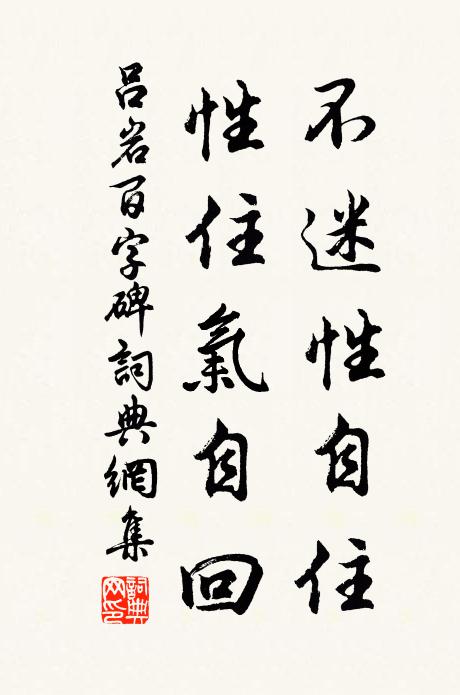 不迷性自住
性住氣自回
呂岩百字碑詞典網集
詞典
网印